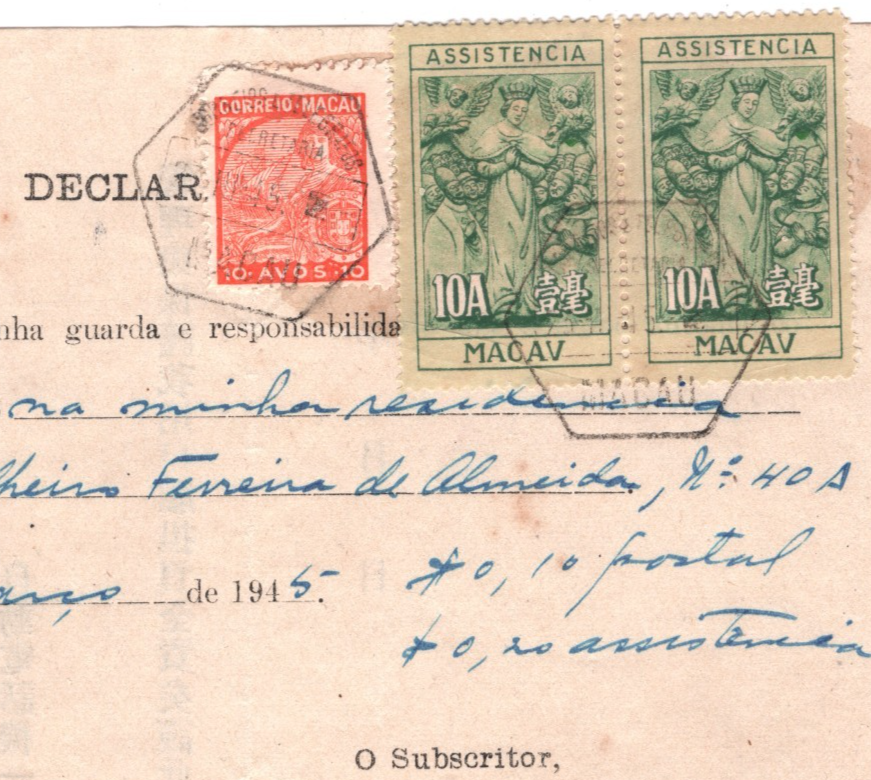 ASSISTENCIA ASSISTENCIA
CORREIO·MACAU
DECLAR
10·AVOS·10
10A 壹毫 10A 壹毫
MACAV MACAV
MACAU
nha guarda e responsabilida
na minha residencia
lheiro Ferreira de Almeida, Nº 40 A
arço de 1945.
$0,10 postal
$0,20 assistencia
O Subscritor,